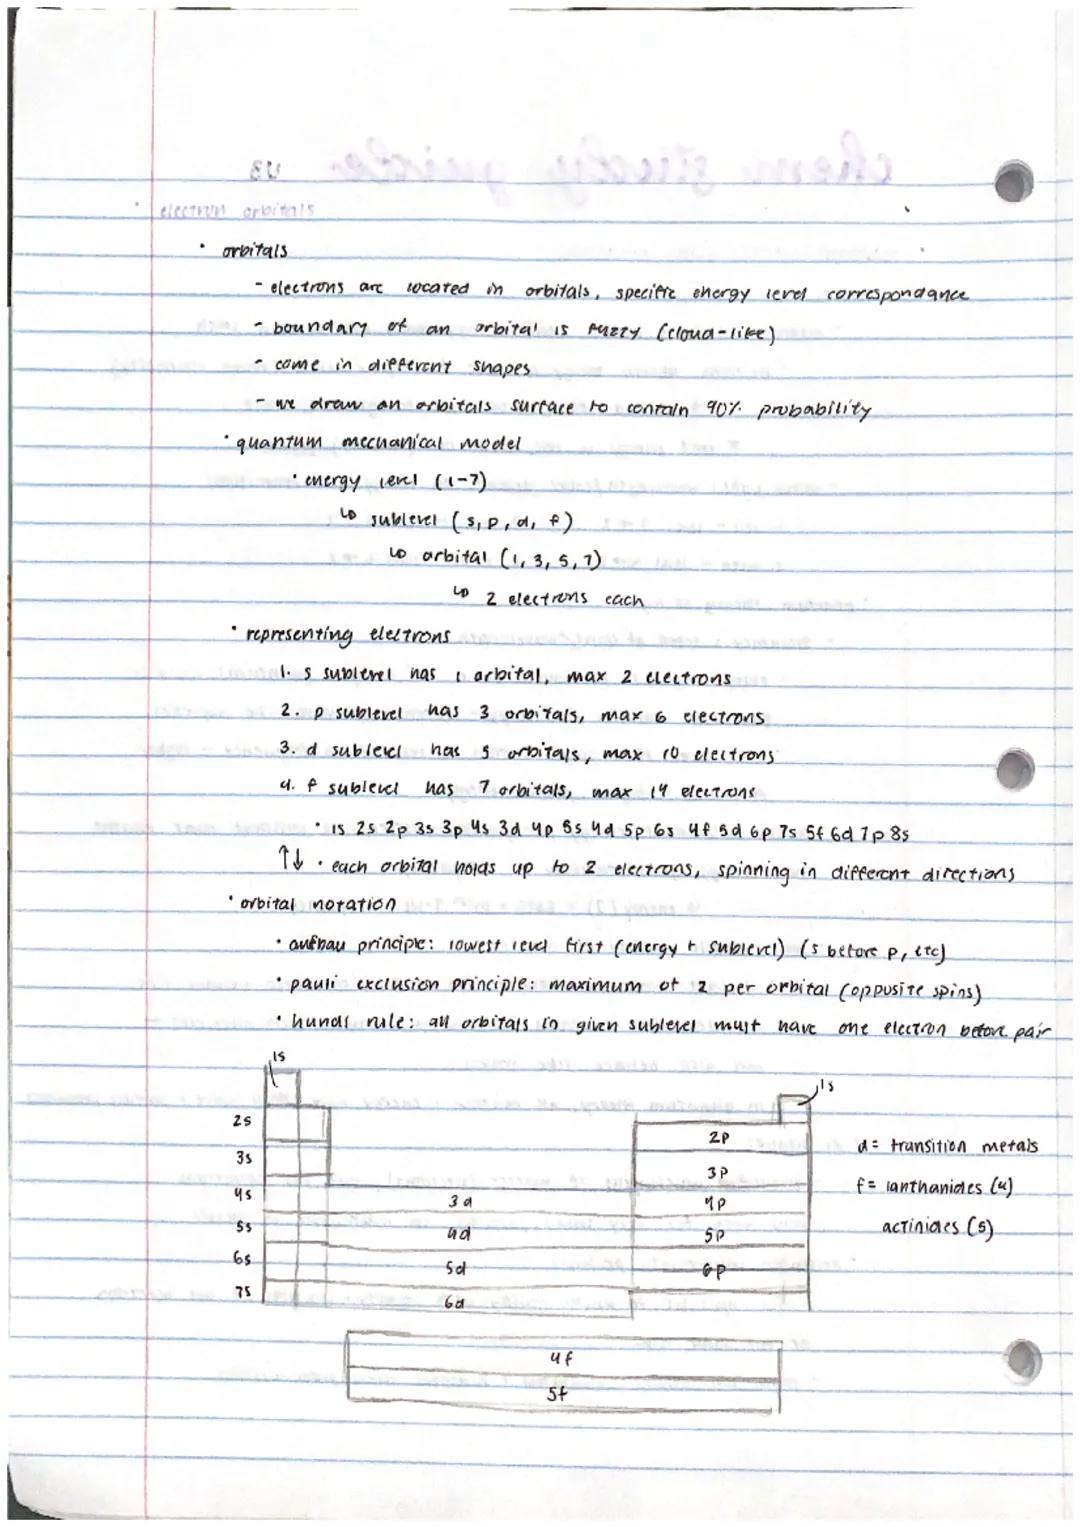 U3
electron orbitals
• orbitals
- electrons are located in orbitals, specific energy level correspondance
- boundary of an orbital is fuzzy (cloud-like)
- come in different shapes
- we draw an orbitals surface to contain 90% probability
• quantum mechanical model
• energy level (1-7)
↳ sublevel (s, p, d, f)
↳ orbital (1, 3, 5, 7)
↳ 2 electrons each
• representing electrons
1. s sublevel has 1 orbital, max 2 electrons
2. p sublevel has 3 orbitals, max 6 electrons
3. d sublevel has 5 orbitals, max 10 electrons
4. f sublevel has 7 orbitals, max 14 electrons
• 1s 2s 2p 3s 3p 4s 3d 4p 5s 4d 5p 6s 4f 5d 6p 7s 5f 6d 7p 8s
↑↓ • each orbital holds up to 2 electrons, spinning in different directions
• orbital notation
• aufbau principle: lowest level first (energy + sublevel) (s before p, etc)
• pauli exclusion principle: maximum of 2 per orbital (opposite spins)
• hunds rule: all orbitals in given sublevel must have one electron before pair
1s
1s
2s 2p
d = transition metals
3s 3p
f = lanthanides (4)
4s 3d 4p
actinides (5)
5s 4d 5p
6s 5d 6p
7s 6d
4f
5f